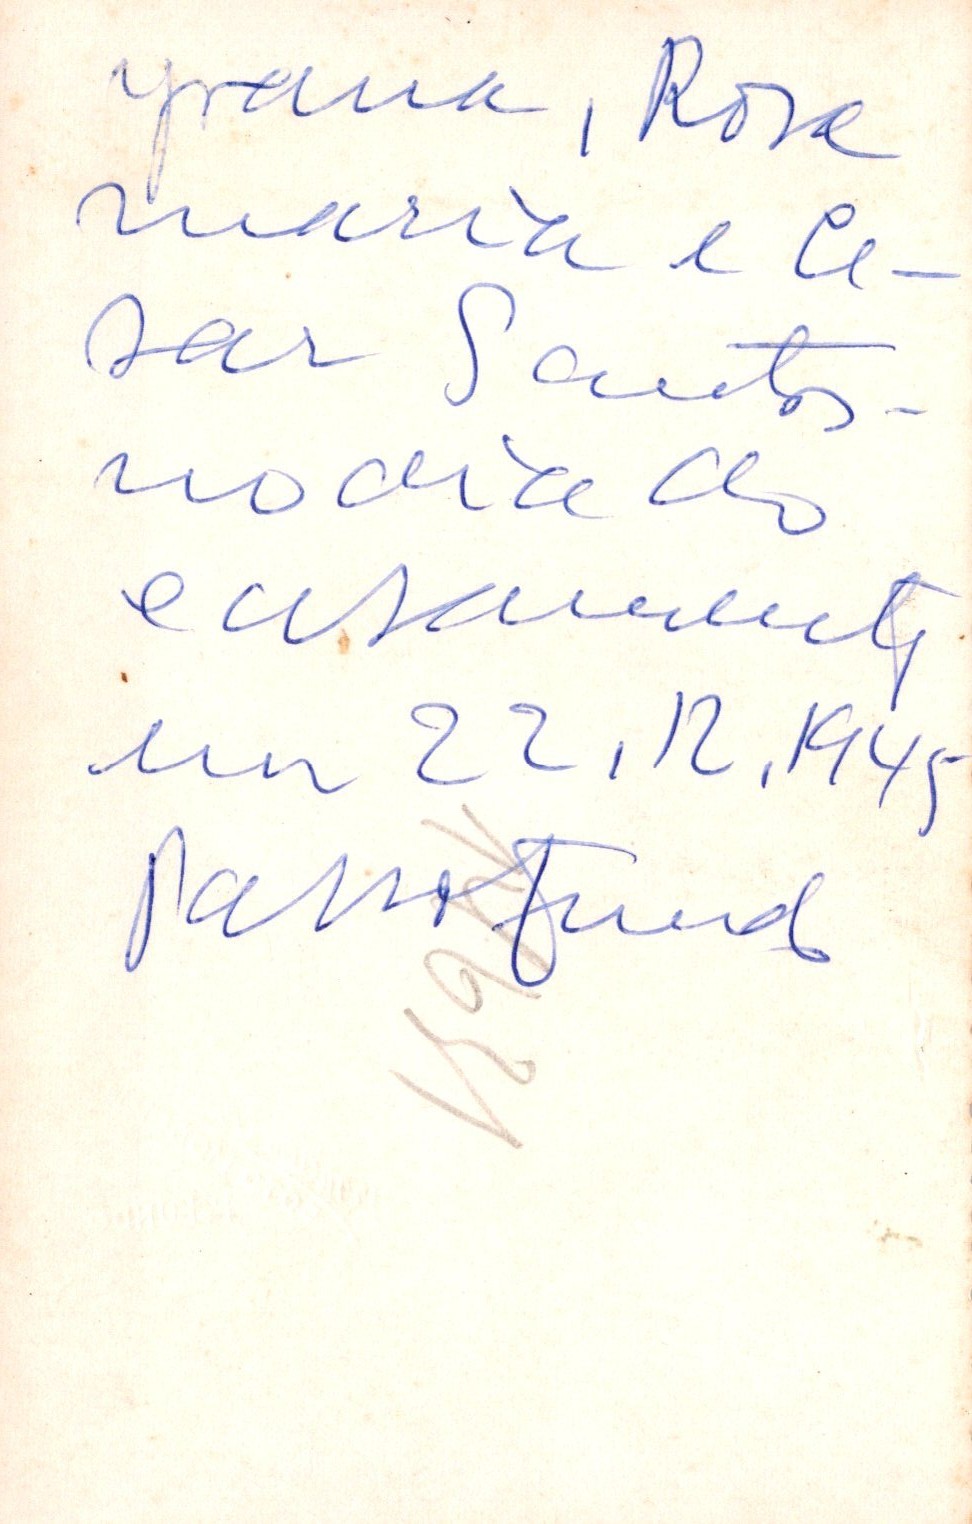 yvanna, Rosa
maria e Ce-
sar Santos-
no dia do
casamento
em 22.12.1945
Passo Fundo